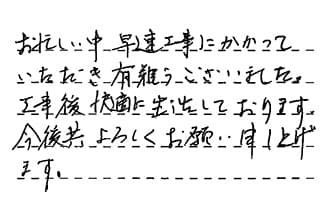 お忙しい中 早速工事にかかって
いただき有難うございました。
工事後 快適に生活しております。
今後共 よろしくお願い申し上げ
ます。